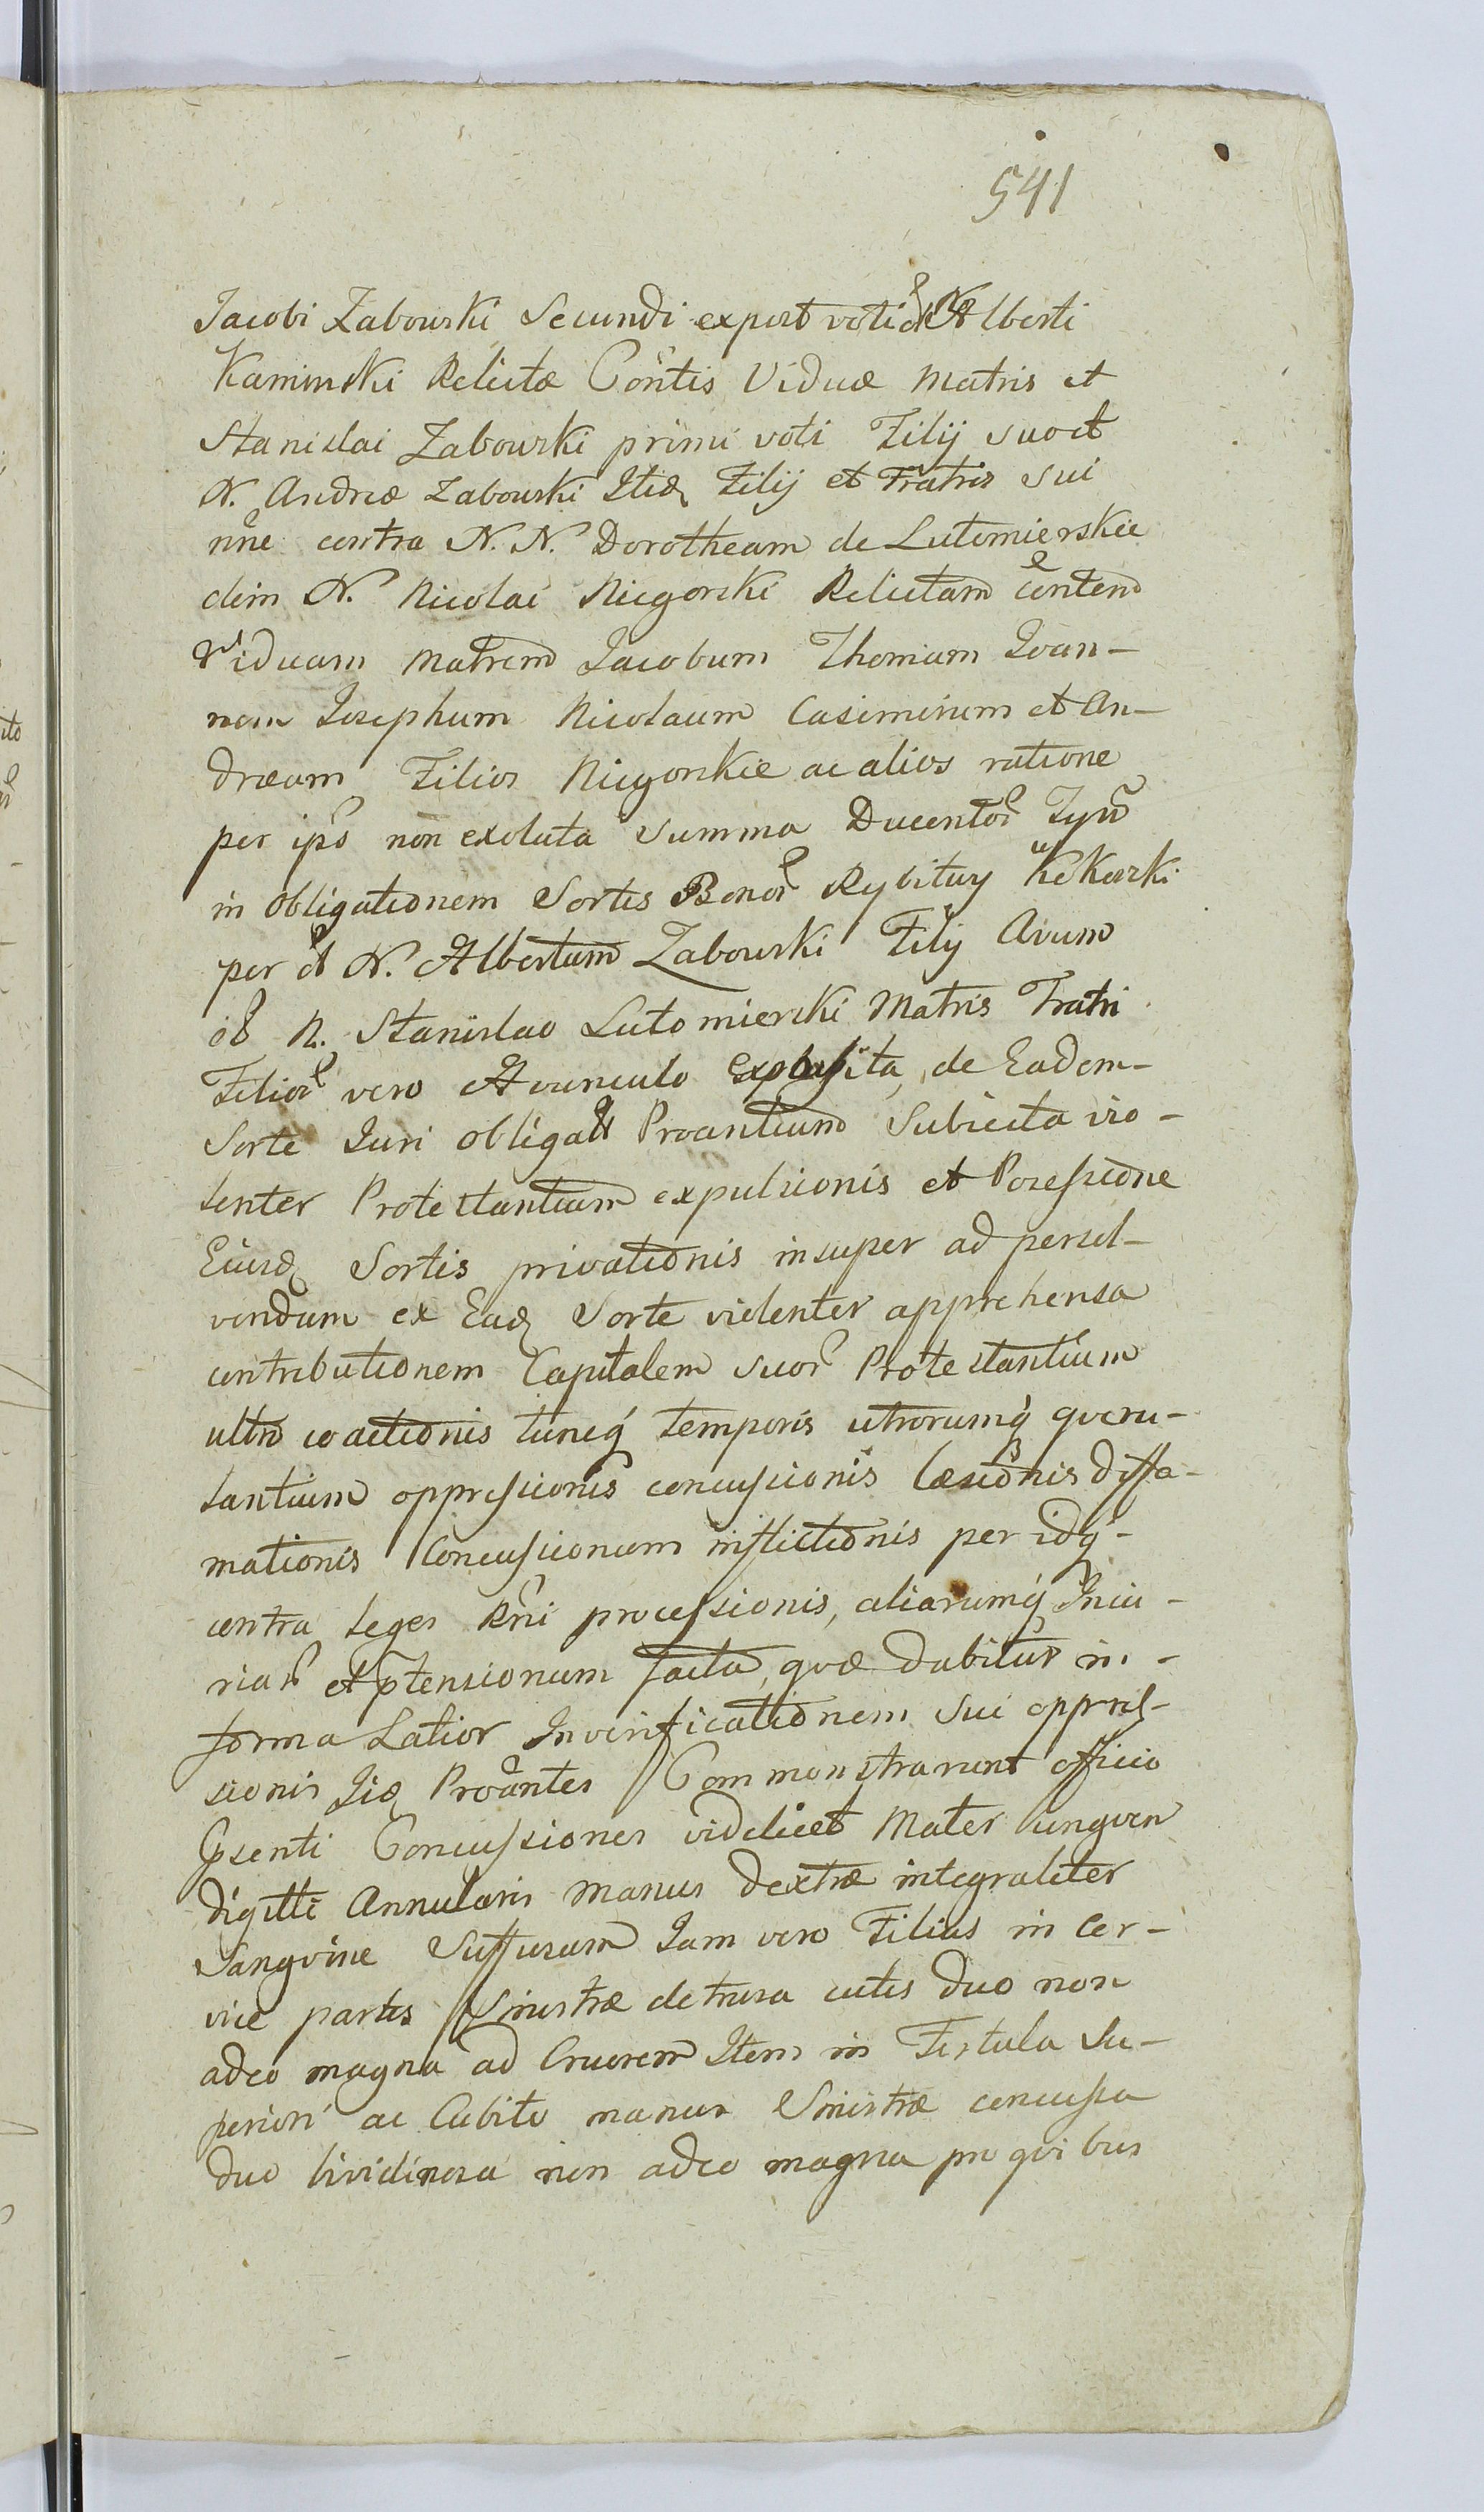 541
Jacobi Zabowski Secundi expost voti et N Alberti
Kaminski Relictæ Contis Viduæ Matris et
Stanislai Zabowski primi voti Filij suo et
N. Andreæ Zabowski Itid Filij et Fratris sui
nne contra N. N. Dorotheam de Lutomierskie
olim N. Nicolai Niegorski Relictam contem
Viduam Matrem Jacobum Thomam Joan-
nem Josephum Nicolaum Casimirum et An-
dræam Filios Niegorskie ac alios ratione
per ips non exoluta Summa Ducentor
in obligationem Sortis Bonor Rybitwy
per N. Albertum Zabowski Filij Avum
N. Stanislao Lutomierski Matris Fratri
Filior vero Avunculo Exposita, de Eadem-
Sorte Juri obligat Proantium Subiecta vio-
lenter Protestantium expulsionis et Possessione
Eiusd Sortis privationis insuper ad persol-
vendum ex Ead Sorte violenter apprehensa
contributionem Capitalem suor Protestantium
ultro coactionis tuncq temporis utrorumq qveru-
lantium oppressionis concussionis læsionis diffa-
mationis Concussionum inflictionis per idq-
contra leges Rni processionis, aliarumq Iniu-
riar et ptensionum facta, qvæ dabitur in-
forma Latior In verificationem sui oppres-
sionis Iid Proantes Commonstrarunt officio
psenti Concussiones videlicet Mater ungven
digitti Annularis manus dextræ integraliter
Sangvine Suffusam Jam vero Filius in Cer-
vice partis Sinistræ detrusa cutis duo non
adeo magna ad Cruorem Item in Fistula Su-
periori ac Cubito manus Sinistræ concussa
duo lividinosa non adeo magna pro qvibus